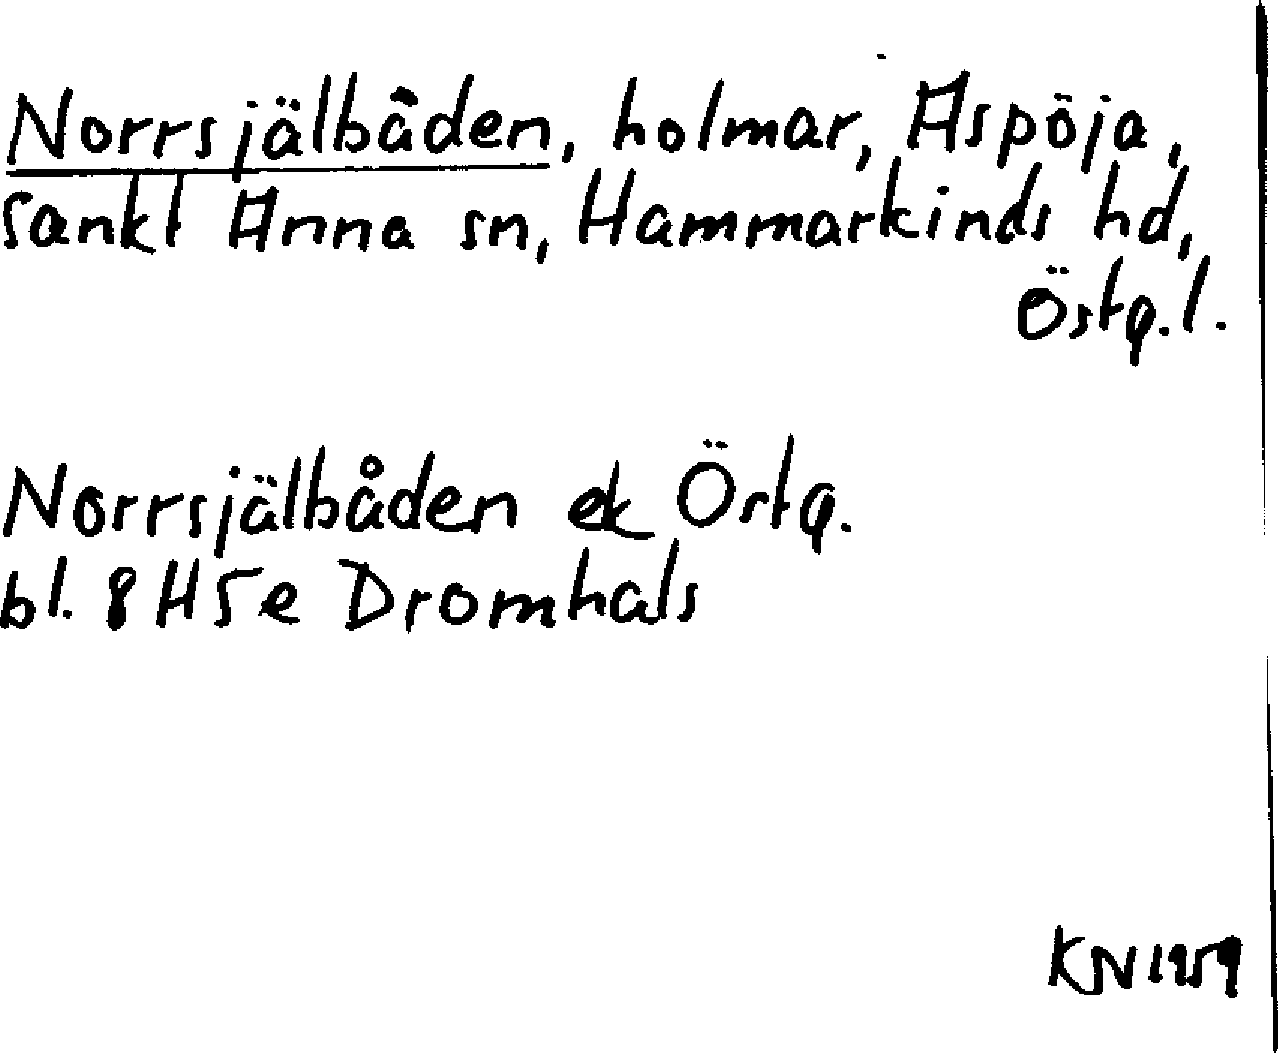 Norrsjälbåden, holmar, Aspöja,
Sankt Anna sn, Hammarkinds hd,
Östg.l.
Norrsjälbåden ek Östg.
bl. 8H5e Dromhals
KN 1959